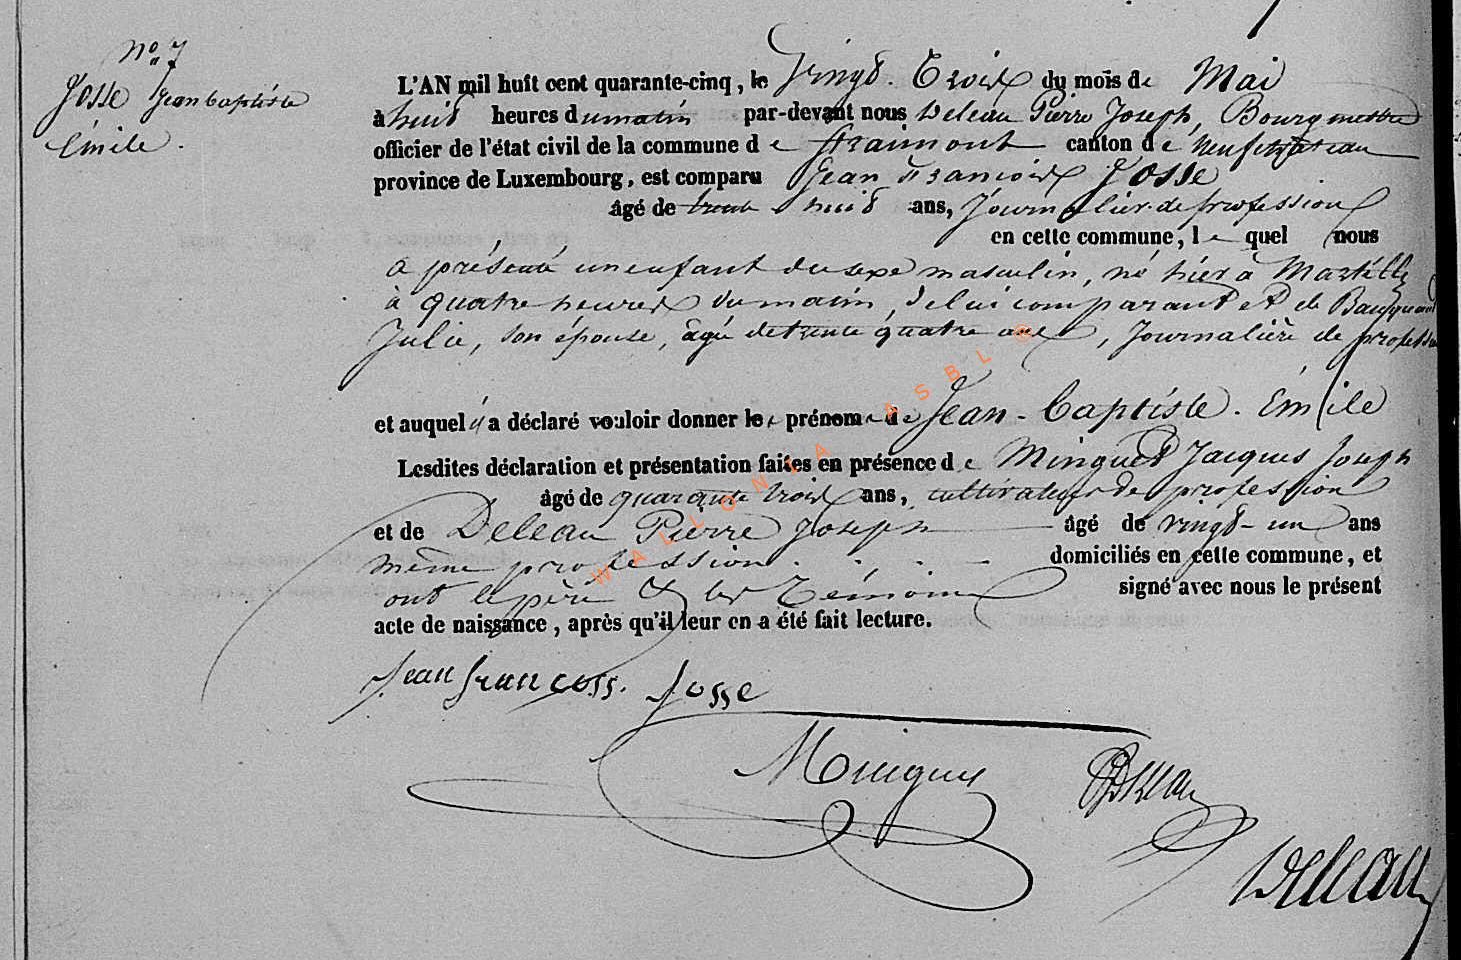 No 7
Josse Jean baptiste
Emile.
L'AN mil huit cent quarante-cinq, le Vingt Trois du mois de Mai
à huit heures dumatin par-devant nous Deleau Pierre Joseph, Bourgmestre
officier de l'état civil de la commune de Straimont canton de Neufchateau
province de Luxembourg, est comparu Jean François Josse
âgé de trente huit ans, Journalier de profession
en cette commune, lequel nous
a présenté un enfant du sexe masculin, né hier à Martilly
à quatre heures dumatin, de lui comparant et de
Julie, son épouse, agé de trente quatre ans, Journalière de profession
et auquel il a déclaré vouloir donner les prénoms de Jean-baptiste. Emile
Lesdites déclaration et présentation faites en présence de Minguet Jacques Joseph
âgé de quarante trois ans, cultivateur de profession
et de Deleau Pierre Joseph âgé de vingt-un ans
même profession. domiciliés en cette commune, et
ont le père & les Témoins signé avec nous le présent
acte de naissance, après qu'il leur en a été fait lecture.
Jean françois. Josse
Minguet
Deleau
WALLONIA ASBL ®